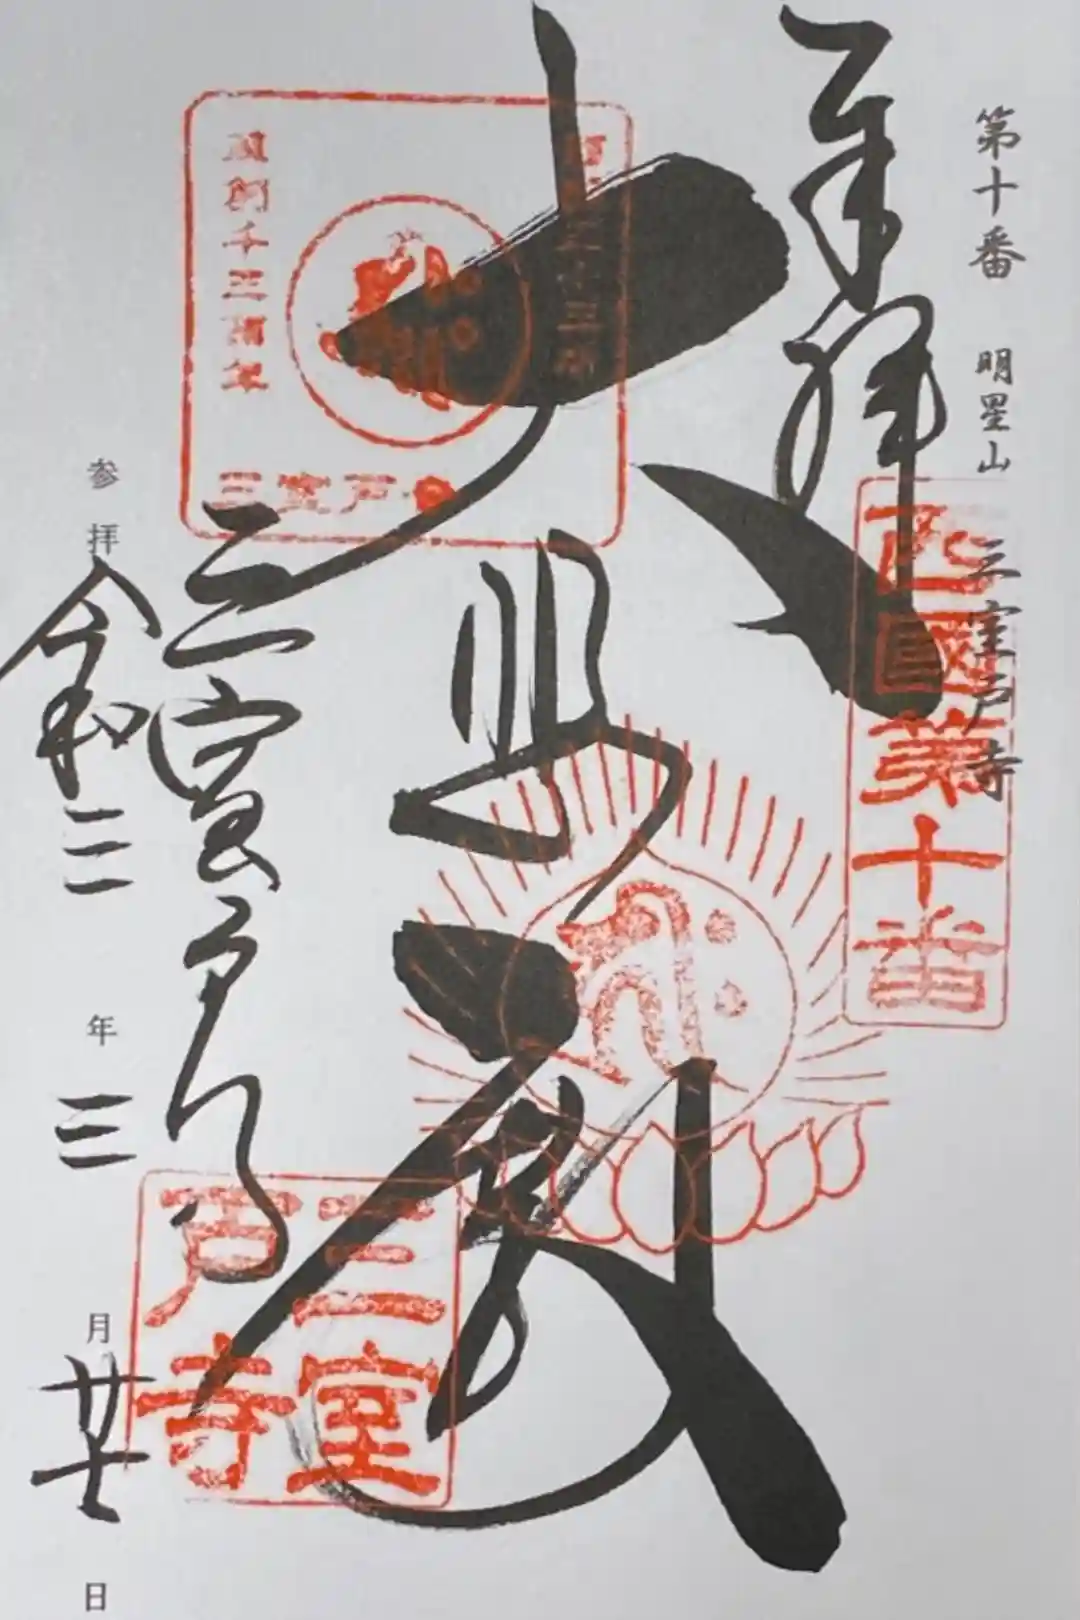 第十番 明星山 三室戸寺
奉拝
西國第十番
大悲殿
三十三所
創千三百年
三室戸
三室戸寺
三室戸寺
参拝 令和三年三月廿七日